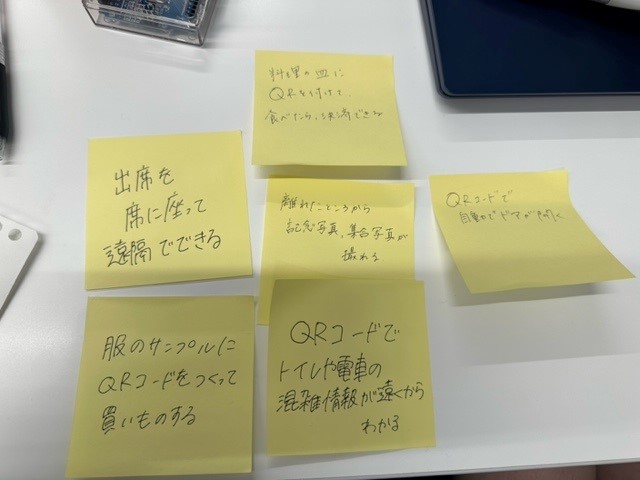 料理の皿に
QRを付けて
食べたら、決済できる
出席を
席に座って
遠隔でできる
離れたところから
記念写真、集合写真が
撮れる
QRコードで
自動でドアが開く
服のサンプルに
QRコードをつくって
買いものする
QRコードで
トイレや電車の
混雑情報が遠くから
わかる